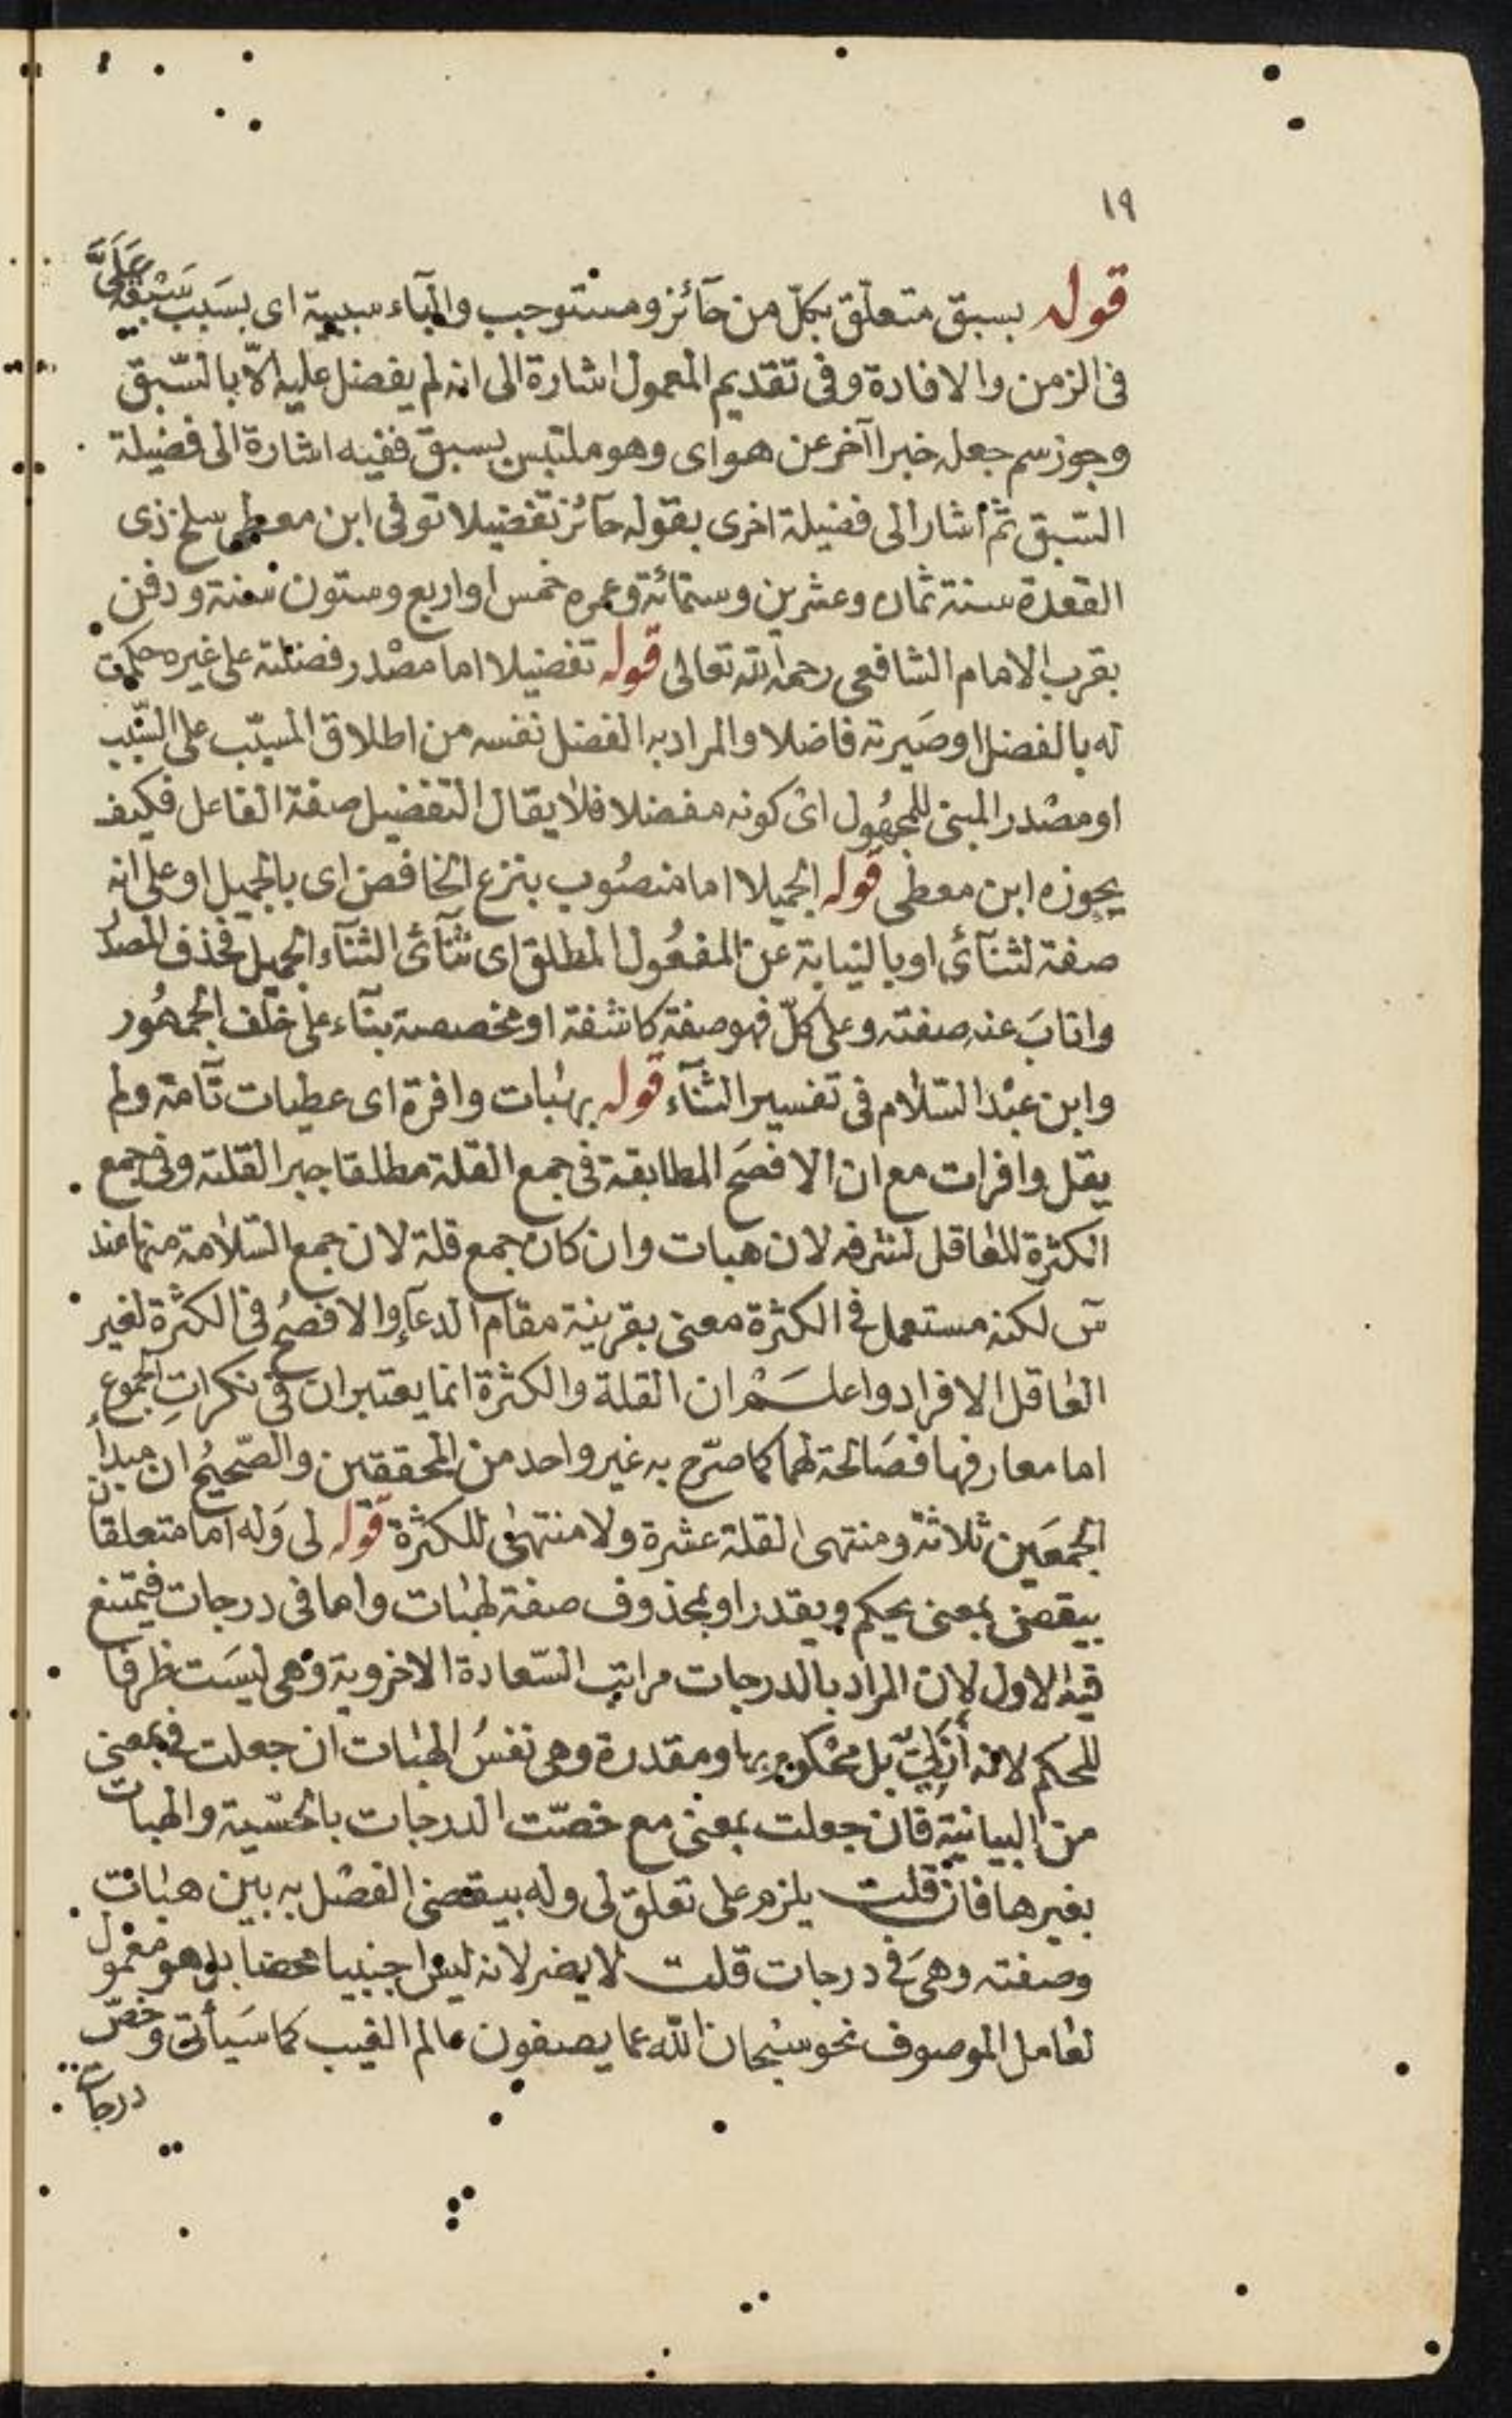 ١٩
قوله بسبق متعلّق بكلّ من حآئز ومستوجب والبآء سببية اى بسَبَب سَبْقِه عَلَىَّ
فى الزمن والافادة وفى تقديم المعمول اشارة الى انه لم يفضل عليه الّا بالسّبق
وجوز سم جعله خبرا آخر عن هو اى وهو ملتبس بسبق ففيه اشارة الى فضيلة
السّبق ثم أشار الى فضيلة اخرى بقوله حآئز تفضيلا توفى ابن معطى سلخ ذى
القعدة سنة ثمان وعشرين وستمائة وعمره خمس او اربع وستون سنة ودفن
بقرب الامام الشافعى رحمه الله تعالى قوله تفضيلا اما مصْدر فضلته على غيره حكمت
له بالفضل او صَيرته فاضلا والمراد به الفضل نفسه من اطلاق المسبّب على السّبب
او مصْدر المبنى للمجهُول اى كونه مفضلا فلا يقال التفضيل صفة الفاعل فكيف
يحوزه ابن معطى قوله الجميلا اما منصُوب بنزع الخافض اى بالجميل او على انه
صفة لثنآئى او بالنيابة عن المفعُول المطلق اى ثنآئى الثنآء الجميل فحذف المصدر
وانابَ عنه صفته وعلى كلّ فهو صفة كاشفة او مخصصة بنآء على خلف الجمهُور
وابن عبْد السّلام فى تفسير الثنآء قوله بهبات وافرة اى عطيات تآمة ولم
يقل وافرات مع ان الافصَح المطابقة فى جمع القلة مطلقا جبرا لقلته وفى جمع
الكثرة للعاقل لشرفه لان هبات وان كان جمع قلة لان جمع السّلامة منها عند
سٓ لكنه مستعمل فى الكثرة معنى بقرينة مقام الدعآء والافصحُ فى الكثرة لغير
العاقل الافراد واعلَمْ ان القلة والكثرة انما يعتبران فى نكراتِ الجموع
اما معارفها فصَالحة لهما كما صرّح به غير واحد من المحققين والصّحيحُ ان مبدأ
الجمعَين ثلاثة ومنتهى القلة عشرة ولا منتهى للكثرة قوله لى وَله اما متعلقان
بيقضى بمعنى يحكم ويقدر او بمحذوف صفة لهبات واما فى درجات فيمتنع
فيه الاول لان المراد بالدرجات مراتب السّعادة الاخروية وهى ليسَت ظرفا
للحكم لانه أزَلِيٌّ بل محْكوم بها ومقدرة وهى نفسُ الهبات ان جعلت فى بمعنى
من البيانية فان جعلت بمعنى مع خصّت الدرجات بالحسّية والهبات
بغيرها فان قلت يلزم على تعلّق لى وله بيقضى الفصْل به بين هبات
وصفته وهى فى درجات قلت لا يضر لانه ليس اجنبيا محضا بل هو معْمول
لعامل الموصوف نحو سُبْحان الله عما يصفون عالم الغيب كما سَيأتى وخصّ
درجات